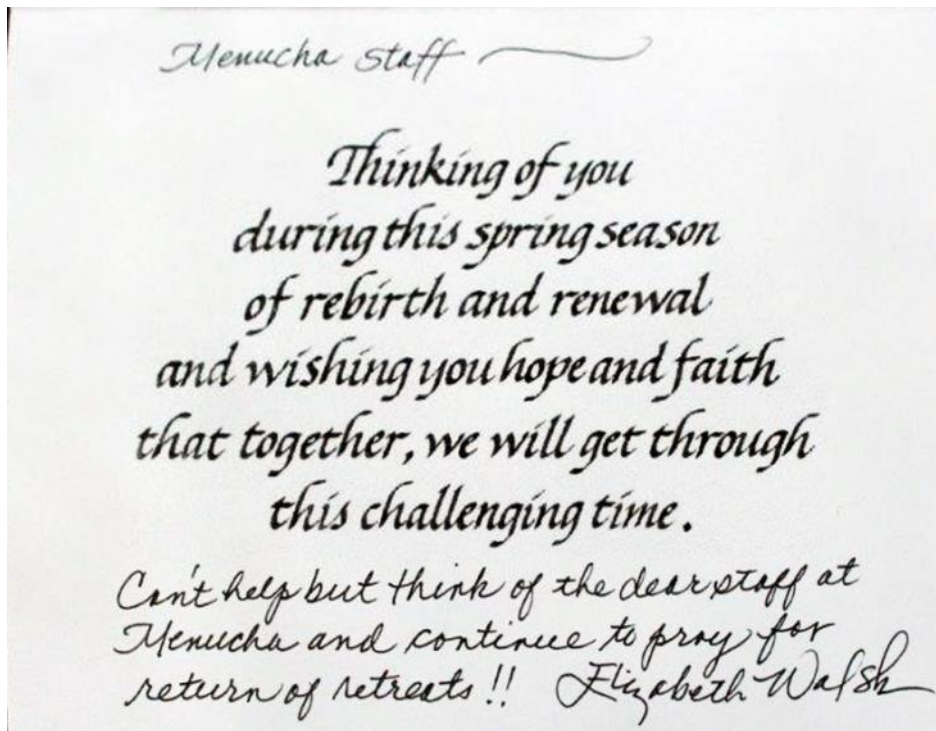 Menucha Staff
Thinking of you
during this spring season
of rebirth and renewal
and wishing you hope and faith
that together, we will get through
this challenging time.
Can't help but think of the dear staff at
Menucha and continue to pray for
return of retreats!! Elizabeth Walsh